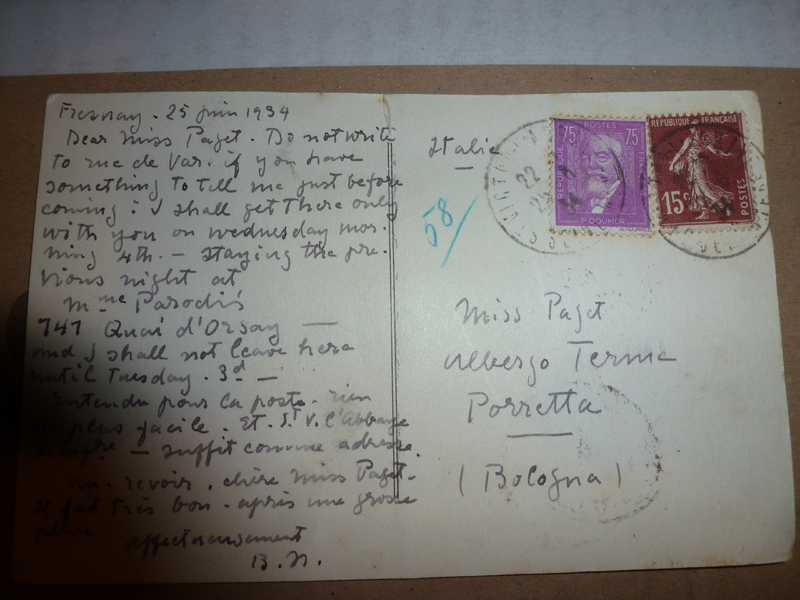 Fresnay. 25 juin 1934
Dear Miss Paget. Do not write
to rue de Var. if you have
something to tell me just before
coming: I shall get there only
with you on wednesday mor-
ning 4th. – staying the pre-
vious night at
Mme Parodi's
741 Quai d'Orsay —
and I shall not leave here
until Tuesday. 3d —
Entendu pour la poste. rien
de plus facile. Et. St V. l'Abbaye
– suffit comme adresse
Au-revoir, chère Miss Paget.
Il fait très bon. après une grosse
pluie.
affectueusement
B.N.
Italie
58/
75c POSTES 75c
REPUBLIQUE
P. DOUMER
REPUBLIQUE FRANÇAISE
15c
POSTES
Miss Paget
Albergo Terme
Porretta
(Bologna)